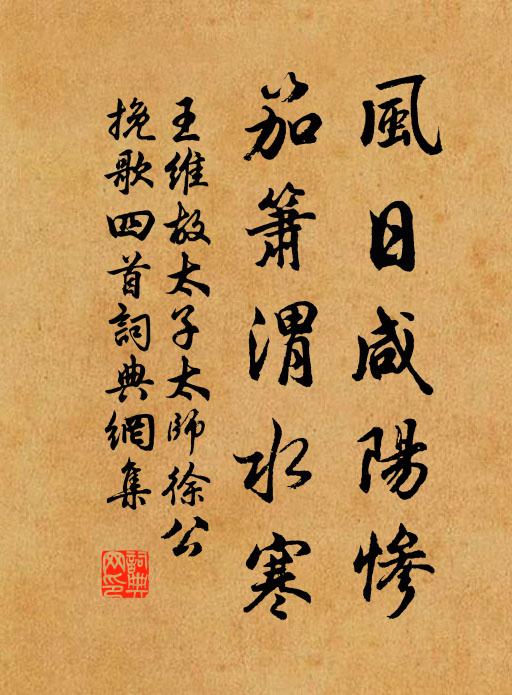 風日咸陽慘
笳簫渭水寒
王維故太子太師徐公
挽歌四首詞典網集
詞典
网印